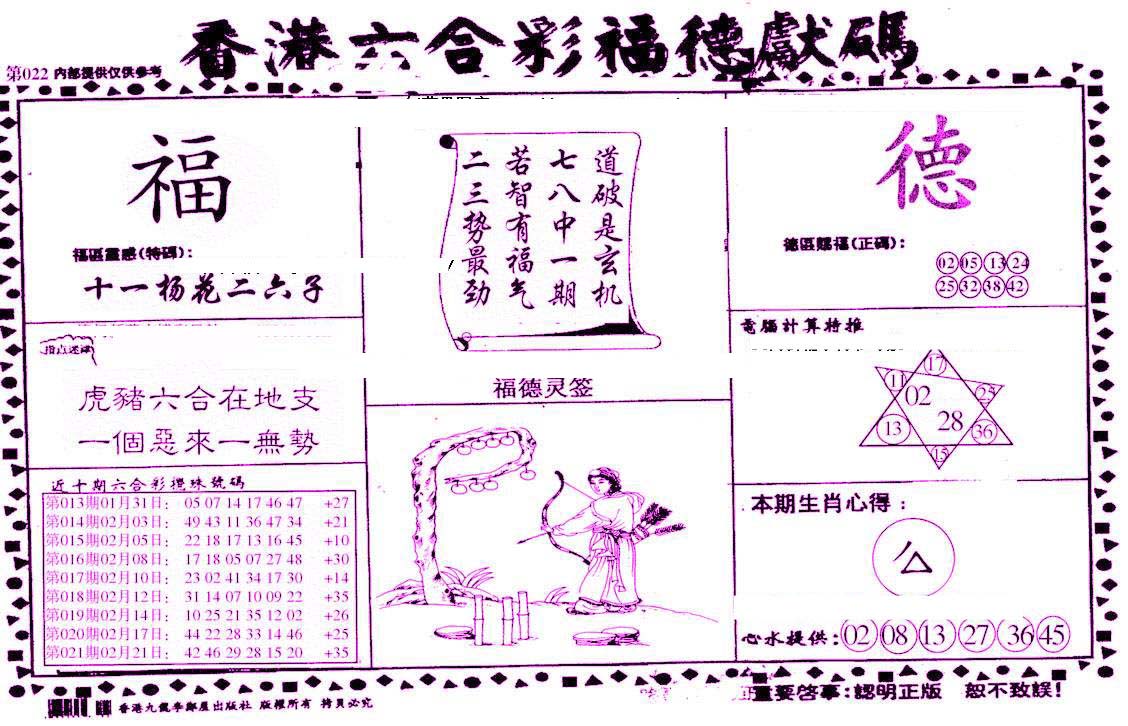 香港六合彩福德獻碼
第022 内部提供仅供参考
福
福區靈感(特碼):
十一杨花二六子
指点迷津
虎豬六合在地支
一個惡來一無勢
近十期六合彩攪珠號碼
第013期01月31日: 05 07 14 17 46 47 +27
第014期02月03日: 49 43 11 36 47 34 +21
第015期02月05日: 22 18 17 13 16 45 +10
第016期02月08日: 17 18 05 07 27 48 +30
第017期02月10日: 23 02 41 34 17 30 +14
第018期02月12日: 31 14 07 10 09 22 +35
第019期02月14日: 10 25 21 35 12 02 +26
第020期02月17日: 44 22 28 33 14 46 +25
第021期02月21日: 42 46 29 28 15 20 +35
道破是玄机
七八中一期
若智有福气
二三势最劲
福德灵签
德
德區賜福(正碼):
02 05 13 24
25 32 38 42
電腦計算特推
17
11 02 25
13 28 36
15
本期生肖心得:
心水提供: 02 08 13 27 36 45
重要啓事:認明正版 恕不致誤!
版權所有 拷貝必究